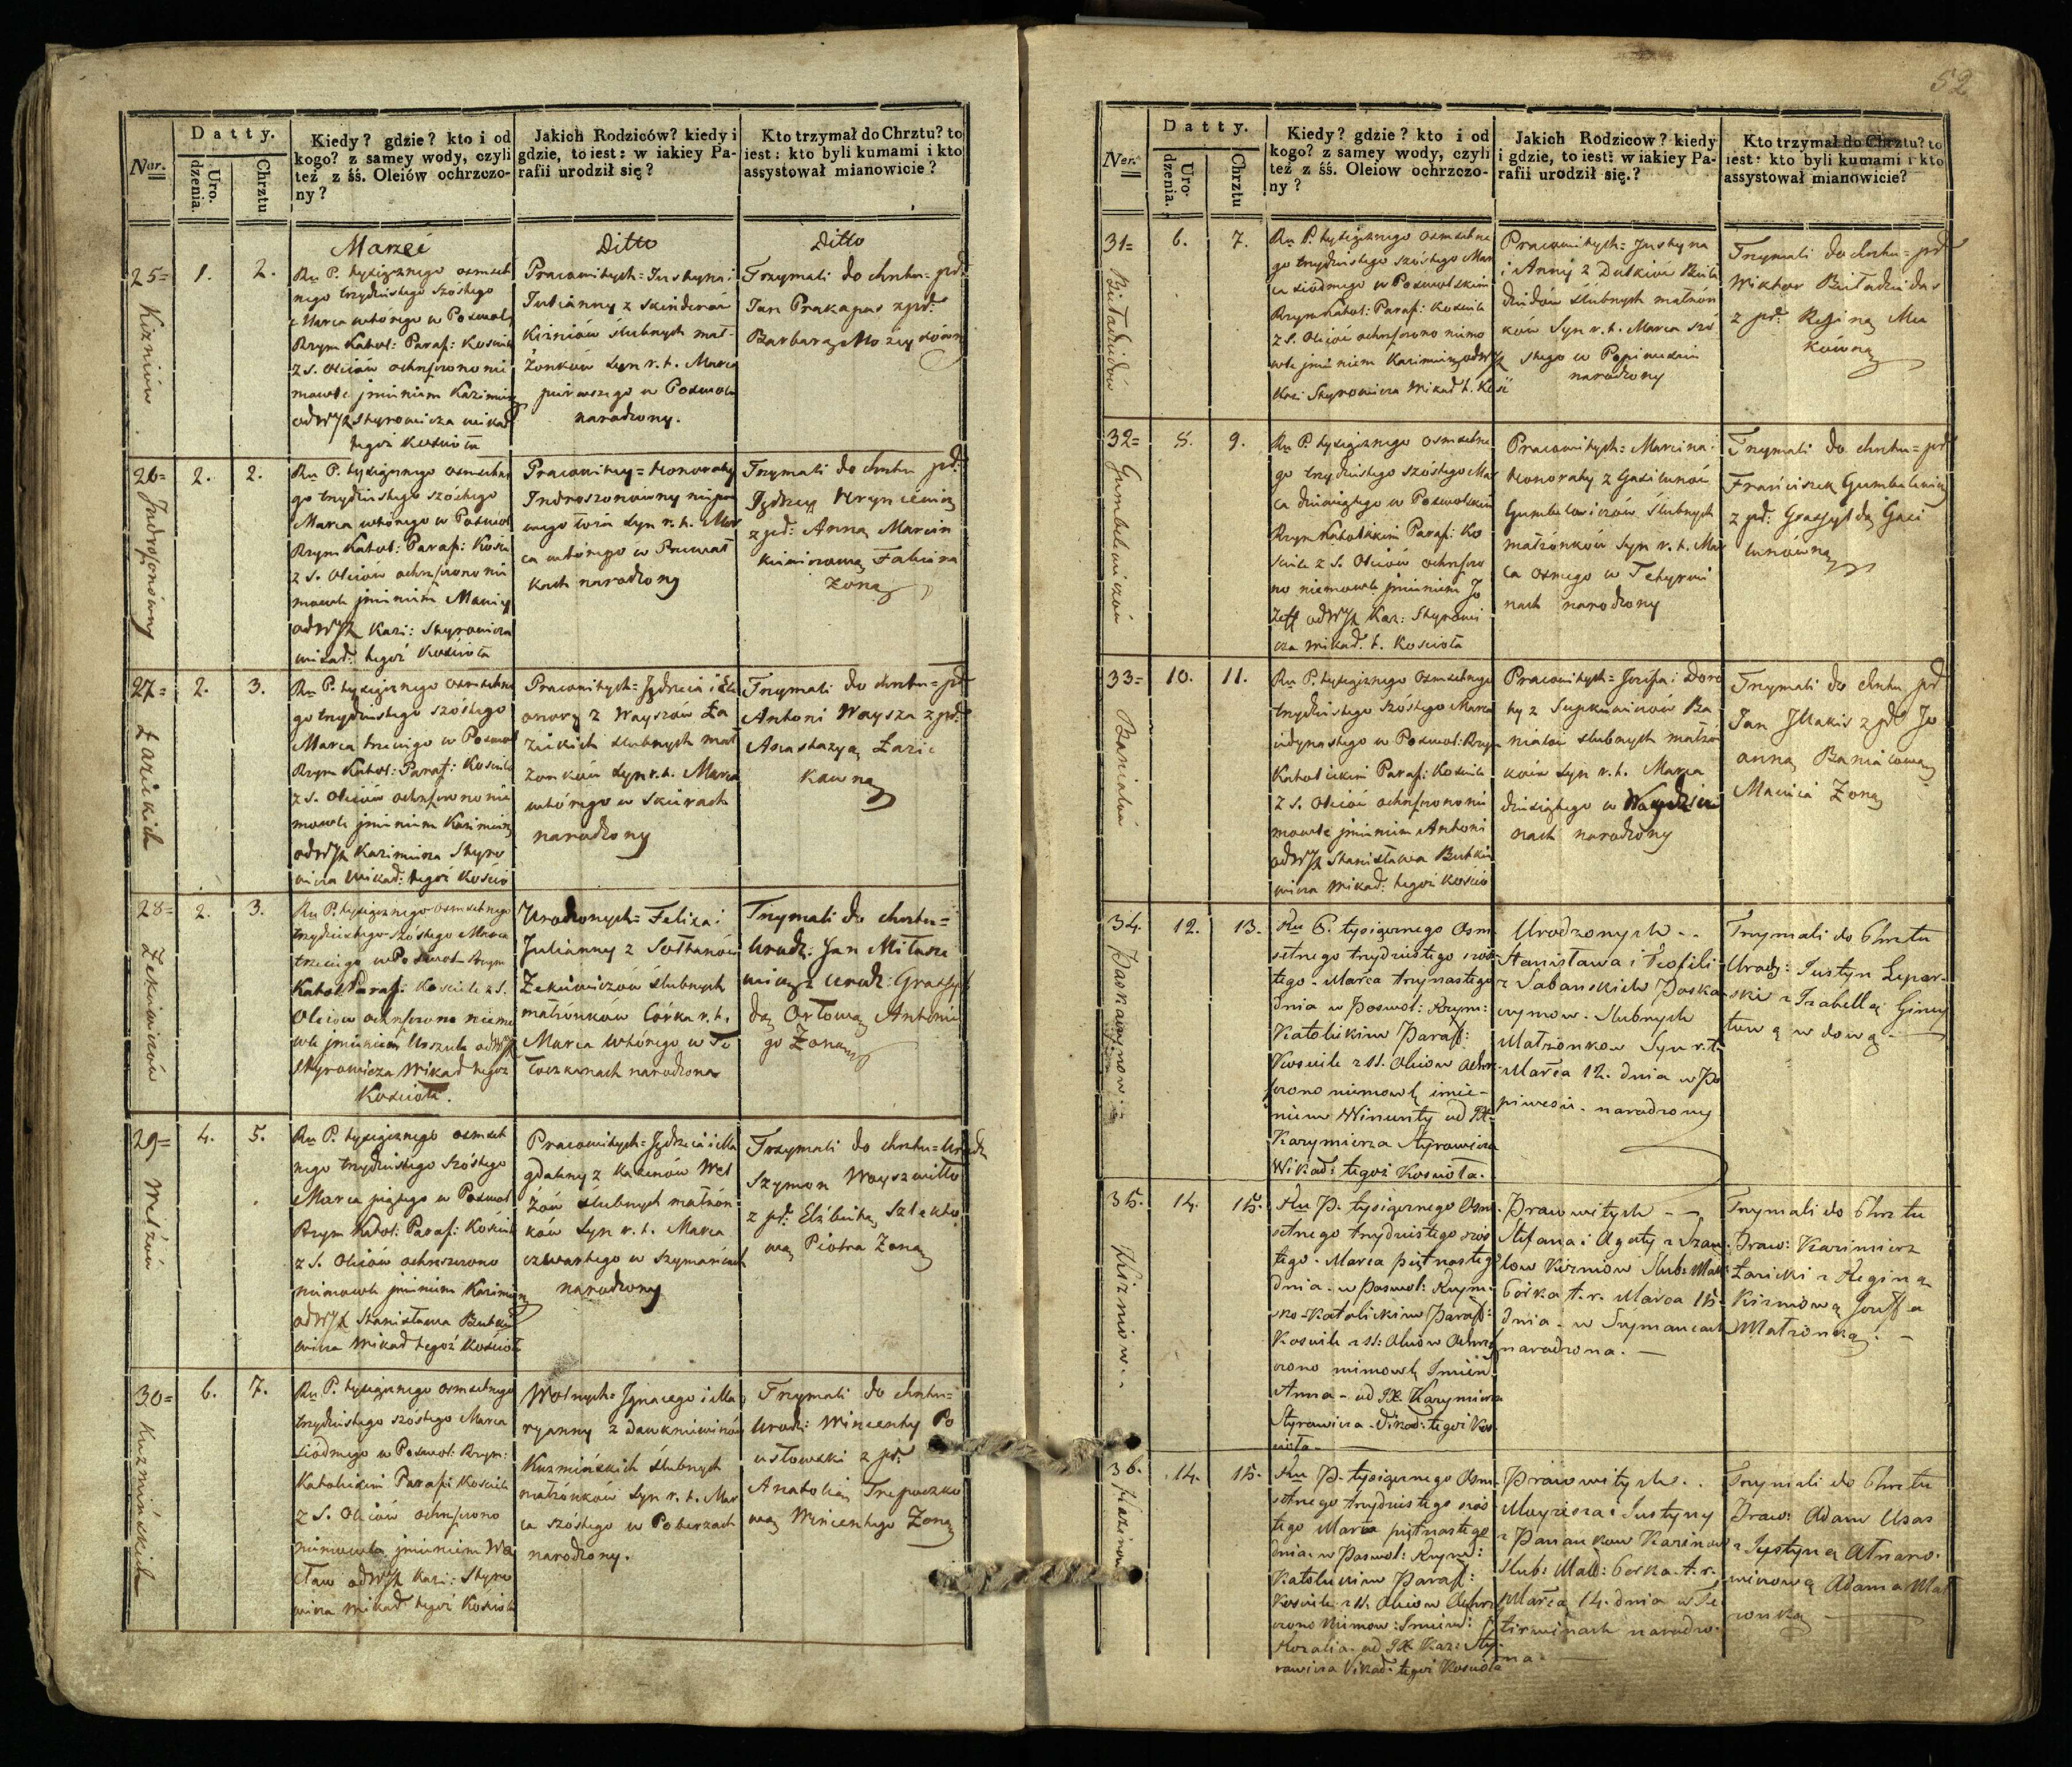 52
Datty.
Ner.
Uro.
dzenia.
Chrztu
Kiedy? gdzie? kto i od
kogo? z samey wody, czyli
też z śś. Oleiów ochrzczo-
ny?
Jakich Rodziców? kiedy i
gdzie, to iest: w iakiey Pa-
rafii urodził się?
Kto trzymał do Chrztu? to
iest: kto byli kumami i kto
assystował mianowicie?
Marzec
Ditto
Ditto
25=
Kizniów
1.
2.
Ru P. tysiącznego osmset
nego trzydziestego szóstego
Marca wtórego w Poswol
Rzym Katol: Paraf: Kosciele
z S. Oleiów ochrzczono nie
mowle jmieniem Kazimierz
od WJX Styrowicza wikad
tegoż Kościoła
Pracowitych= Justyna i
Julianny z Skinderów
Kizniów ślubnych mał-
żonków syn r. t. Marca
pierwszego w Poswolu
narodzony.
Trzymali do chrztu= pd:
Jan Prakapas z pd:
Barbarą
26=
Indroszonówny
2.
2.
Ru P. tysiącznego osmsetne
go trzydziestego szóstego
Marca wtórego w Poswol
Rzym Katol: Paraf: Kościele
z S. Oleiów ochrzczono nie
mowle jmieniem Maciey
od WJX Kazi: Styrowicza
wikad: tegoż Kościoła
Pracowitey= Honoraty
Indroszonówny niepra
wego łoża syn r. t. Mar
ca wtórego w
kach narodzony
Trzymali do chrztu pd:
Jędrzey Hryncewicz
z pd: Anną Marcin
kiewiczową Fabiana
żoną
27=
Łazickich
2.
3.
Ru P. tysiącznego osmsetne
go trzydziestego szóstego
Marca trzeciego w Poswol
Rzym Katol: Paraf: Kosciele
z S. Oleiów ochrzczono nie
mowle jmieniem Kazimierz
od WJX Kazimierza Styro
wicza Wikad: tegoż Kościo
Pracowitych= Jędrzeia i Ele
onory z Wayszów Ła
zickich ślubnych mał
żonków syn r. t. Marca
wtórego w Skierach
narodzony
Trzymali do chrztu= pd
Antoni Waysza z pd:
Anastazyą Łazic
kawną
28=
Zekiewiczów
2.
3.
Ru P. tysiącznego osmsetnego
trzydziestego szóstego Marca
trzeciego w Poswol Rzym
Katol Paraf: Kosciele z S.
Oleiow ochrzczono niemo
wle jmieniem Urszula od WJX
Styrowicza Wikad tegoż
Kościoła.
Urodzonych= Felixa i
Julianny z Sołtanów
Zekiewiczów ślubnych
małżonków Córka r. t.
Marca wtórego w Te
narodzona
Trzymali do chrztu=
Urodz. Jan Mitasze
wicz z Urodz: Grassyl
dą Orłową Antonie
go Żoną
29=
Welżów
4.
5.
Ru P. tysiącznego osmset
nego trzydziestego szóstego
Marca piątego w Poswol
Rzym Katol: Paraf: Kościele
z S. Oleiów ochrzczono
niemowle jmieniem Kazimierz
od WJX Stanisława Butkie
wicza Wikad tegoż Kościoła
Pracowitych= Jędrzeia i Ma
gdaleny z Kazenów Wel
żów ślubnych małżon
ków syn r. t. Marca
czwartego w Szymańcach
narodzony
Trzymali do chrztu= Urodz
Szymon Wayszwiłło
z pd: Elżbietą Szlekto
wą Piotra Żoną
30=
Kuzmińskich
6.
7.
Ru P. tysiącznego osmsetnego
trzydziestego szóstego Marca
siódmego w Poswol: Rzym:
Katolickim Paraf: Kosciele
z S. Oleiów ochrzczono
niemowle jmieniem Wa
cław od WJX Kazi: Styro
wicza Wikad tegoż Kościoła
Wolnych= Jgnacego i Ma
ryanny z Dawkniewiczów
Kuzmińskich ślubnych
małżonków syn r. t. Mar
ca szóstego w Poberzach
narodzony.
Trzymali do chrztu=
Urodz: Wincenty Po
ustowski z pd:
Anatolią Trepaczko
wą Wincentego Żoną
Datty.
Ner.
Uro-
dzenia.
Chrztu
Kiedy? gdzie? kto i od
kogo? z samey wody, czyli
też z śś. Oleiow ochrzczo-
ny?
Jakich Rodziców? kiedy
i gdzie, to iest: w iakiey Pa-
rafii urodził się?
Kto trzymał do Chrztu? to
iest: kto byli kumami i kto
assystował mianowicie?
31=
6.
7.
Ru P. tysiącznego osmsetne
go trzydziestego szóstego Mar
ca siódmego w Poswolskim
Rzym Katol: Paraf: Kosciele
z S. Oleiów ochrzczono niemo
wle jmieniem Kazimierz od WJX
Kazi: Styrowicza Wikad t. Kości
Pracowitych= Justyna
i Anny z Dutkiów
dzidów ślubnych małżon
ków Syn r. t. Marca szó
stego w Popiweslu
narodzony
Trzymali do chrztu= pd
Wiktor
z pd: Reginą Mu
kówną
32=
Gumbelewiczów
8.
9.
Ru P. tysiącznego osmsetne
go trzydziestego szóstego Mar
ca dziewiątego w Poswolskim
Rzym Katolickim Paraf: Ko
ściele z S. Oleiów ochrzczo
no niemowle jmieniem Jo
zeff od WJX Kaz: Styrowi
cza Wikad: t. Kościoła
Pracowitych= Marcina i
Honoraty z Gasiunów
Gumbelewiczów Ślubnych
małżonków Syn r. t. Mar
ca osmego w Tetyrwi
nach narodzony
Trzymali do chrztu= pd
Franciszek Gumbelewicz
z pd: Grassyldą Gasi
unówną
33=
Baniałów
10.
11.
Ru P. tysiącznego osmsetnego
trzydziestego szóstego Marca
iedynastego w Poswol: Rzym
Katolickim Paraf: Kościele
z S. Oleiów ochrzczono nie
mowle jmieniem Antoni
od WJX Stanisława Butkie
wicza Wikad: tegoż Kościo
Pracowitych= Józefa i Doro
ty z Supkiewiczów Ba
niałów ślubnych małżon
ków syn r. t. Marca
dziesiątego w
nach narodzony
Trzymali do chrztu pd
Jan z pd Jo
anną Baniałową
Macieia Żoną
34.
12.
13.
Ru P. tysiącznego Osm-
setnego trzydziestego szós-
tego Marca trzynastego
dnia w Poswol: Rzym:
Katolickim Paraf:
Kosciele z SS. Oleiow ochrz-
czono niemowlę imie-
niem Wincenty od JX.
Kazymierza Styrowicza
Wikad: tegoż Kosciola.
Urodzonych --
Stanisława i Teofili
z Sabanskich Paska-
rzymow. Slubnych
Małżonkow Syn r. t.
Marca 12. dnia w Po
piwesiu. narodzony
Trzymali do Chrztu
Urodz: Justyn Lepar-
ski z Izabellą Giney
tową wdową. -
35.
Kizniow.
14.
15.
Ru P. tysiącznego Osm-
setnego trzydziestego szos
tego. Marca piętnastego
dnia. w Poswol: Rzym-
sko-Katolickim Paraf:
Kosciele z SS: Oleiow Ochrz
czono niemowlę Imien:
Anna - od JX. Kazymierza
Styrowicza. Vikad: tegoż Kos-
ciola.
Pracowitych --
Stefana i Agaty z Szau-
low Kizniow Slub: Małż
Corka t. r. Marca 15.
dnia - w Szymancach
narodzona. -
Trzymali do Chrztu
Praw: Kazimierz
Łazicki z Reginą
Kizniową Jozeffa
Małżonką. -
36.
Kazinow
14.
15.
Ru P. tysiącznego Osm-
setnego trzydziestego szos
tego Marca piętnastego
dnia. w Poswol: Rzym:
Katolickim Paraf:
Kosciele z SS. Oleiow Ochrz
czono Niemow: Imien:
Rozalia. od JX Kaz: Sty-
rowicza Vikad: tegoż Kosciola
Pracowitych.
Mayziesza i Justyny
z Panaukow Kazinow
Slub: Małż: Corka. t. r.
Marca 14. dnia w Te
tirwinach narodzo-
na. -
Trzymali do Chrztu
Praw: Adam Usas
z Justyną
Adama Mał
żonką